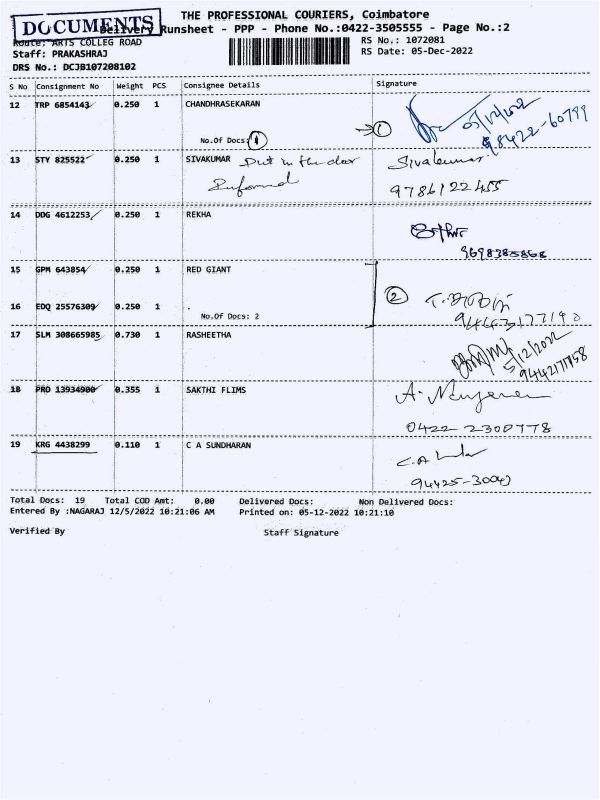 DOCUMENTS
THE PROFESSIONAL COURIERS, Coimbatore
Delivery Runsheet - PPP - Phone No.:0422-3505555 - Page No.:2
Route: ARTS COLLEG ROAD
RS No.: 1072081
Staff: PRAKASHRAJ
RS Date: 05-Dec-2022
DRS No.: DCJB107208102
S No Consignment No Weight PCS Consignee Details Signature
12 TRP 6854143 0.250 1 CHANDHRASEKARAN
05/12/2022
98422-60799
No.Of Docs: 1
1
13 STY 825522 0.250 1 SIVAKUMAR Put in the door Sivakumar
Informed
9786122455
14 DDG 4612253 0.250 1 REKHA
9698385868
15 GPM 643854 0.250 1 RED GIANT
2
16 EDQ 25576309 0.250 1 .
No.Of Docs: 2
17 SLM 308665985 0.730 1 RASHEETHA
5/12/2022
18 PRO 13934900 0.355 1 SAKTHI FLIMS
0422 2300778
19 KRG 4438299 0.110 1 C A SUNDHARAN
Total Docs: 19 Total COD Amt: 0.00 Delivered Docs: Non Delivered Docs:
Entered By :NAGARAJ 12/5/2022 10:21:06 AM Printed on: 05-12-2022 10:21:10
Verified By Staff Signature